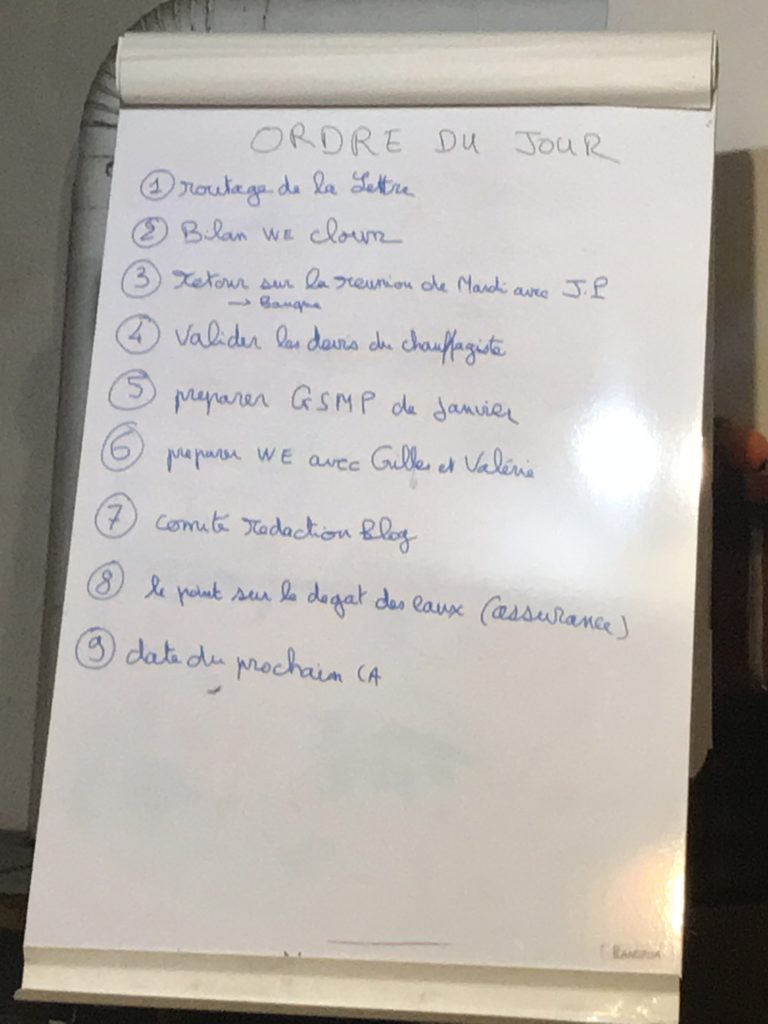 ORDRE DU JOUR
1 routage de la Lettre
2 Bilan WE clown
3 Retour sur la reunion de Mardi avec J.P
→ Banque
4 Valider les devis du chauffagiste
5 preparer GSMP de Janvier
6 preparer WE avec Gilles et Valérie
7 comité redaction Blog
8 le point sur le degat des eaux (assurance)
9 date du prochain CA